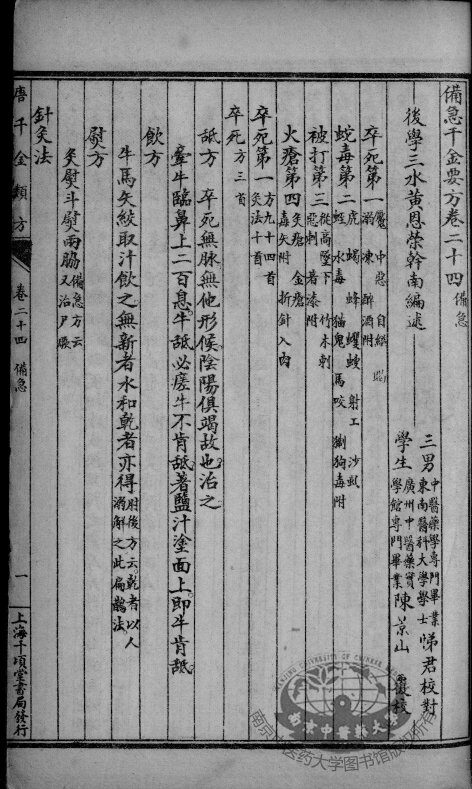 備急千金要方卷二十四 備急
後學三水黃恩榮幹南編述
三男 中醫藥學專門畢業 東南醫科大學學士 睇君校對
學生 廣州中醫藥實學館專門畢業 陳景山 覆校
卒死第一 魘 中惡 自縊 溺 凍 醉酒附
蛇毒第二 虎 蝎 蜂 蠼螋 射工 沙虱 蛭 水毒 猫鬼 馬咬 猘狗毒附
被打第三 從高墜下 竹木刺 惡刺 着漆附
火瘡第四 灸瘡 金瘡 毒矢附 折針入肉
卒死第一 方九十四首 灸法十首
卒死 方三首
舐方 卒死無脉無他形候陰陽俱竭故也治之
牽牛臨鼻上二百息牛舐必瘥牛不肯舐著鹽汁塗面上即牛肯舐
飲方
牛馬矢絞取汁飲之無新者水和乾者亦得 肘後方云乾者以人溺解之此扁鵲法
熨方
灸熨斗熨兩脇 備急方云又治尸厥
針灸法
唐千金類方 卷二十四 備急 一 上海千頃堂書局發行
南京中醫藥大學
南京中医药大学图书馆版权所有